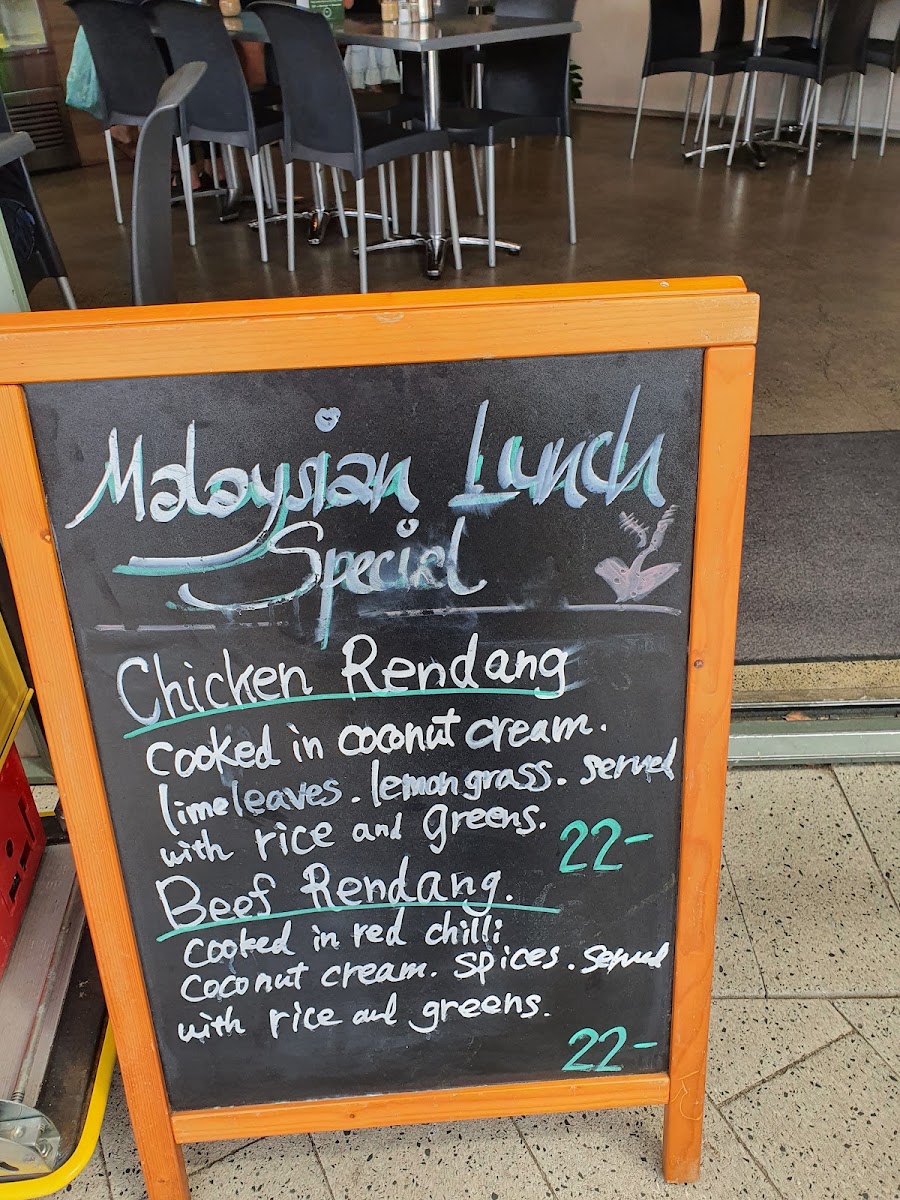 Malaysian Lunch
Speciel
Chicken Rendang
Cooked in coconut cream.
lime leaves. lemongrass. served
with rice and greens.
22-
Beef Rendang.
cooked in red chilli
coconut cream. spices. served
with rice and greens.
22-